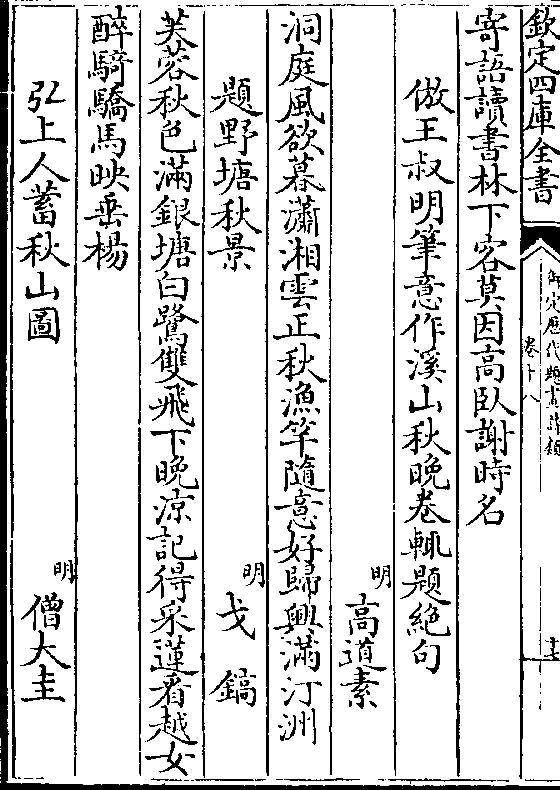 欽定四庫全書
御定歷代題畫詩類
卷十八
十七
寄語讀書林下客莫因高臥謝時名
倣王叔明筆意作溪山秋晚卷輒題絶句
明 高道素
洞庭風欲暮瀟湘雲正秋漁竿隨意好歸興滿汀洲
題野塘秋景
明 戈鎬
芙蓉秋色滿銀塘白鷺雙飛下晚凉記得采蓮看越女
醉騎驕馬映垂楊
弘上人蓄秋山圖
明 僧大圭